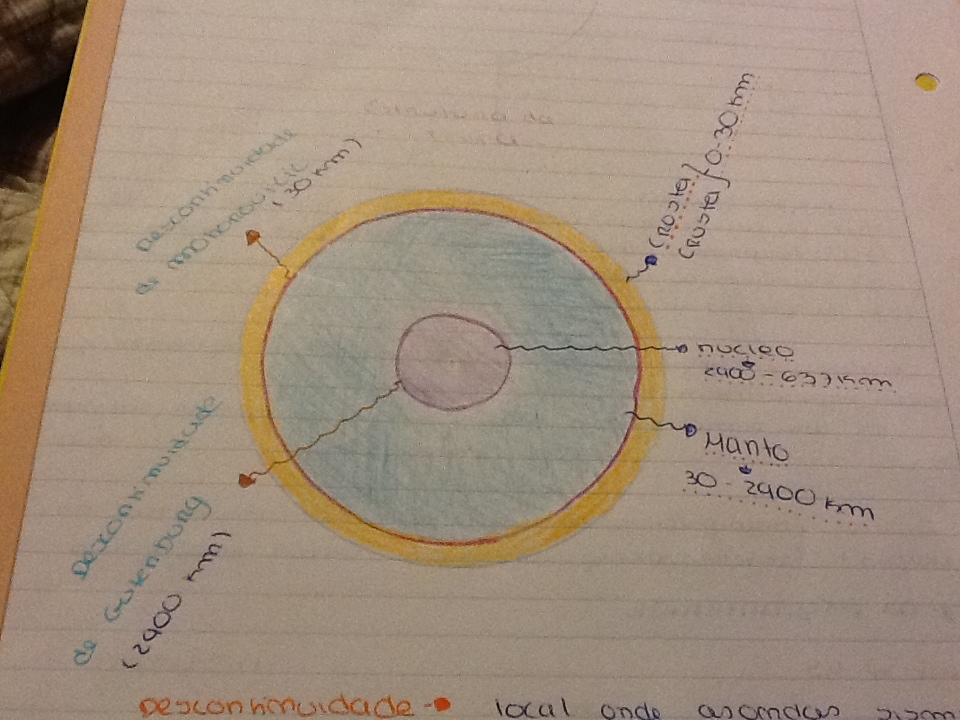 Estrutura da
Terra
Descontinuidade
de Mohorovicic
(30 km)
(Rosta
Crosta } 0-30 km
nucleo
2900 - 637 km
Manto
30 - 2900 km
Descontinuidade
de Gutenburg
(2900 km)
Descontinuidade → local onde as ondas sism